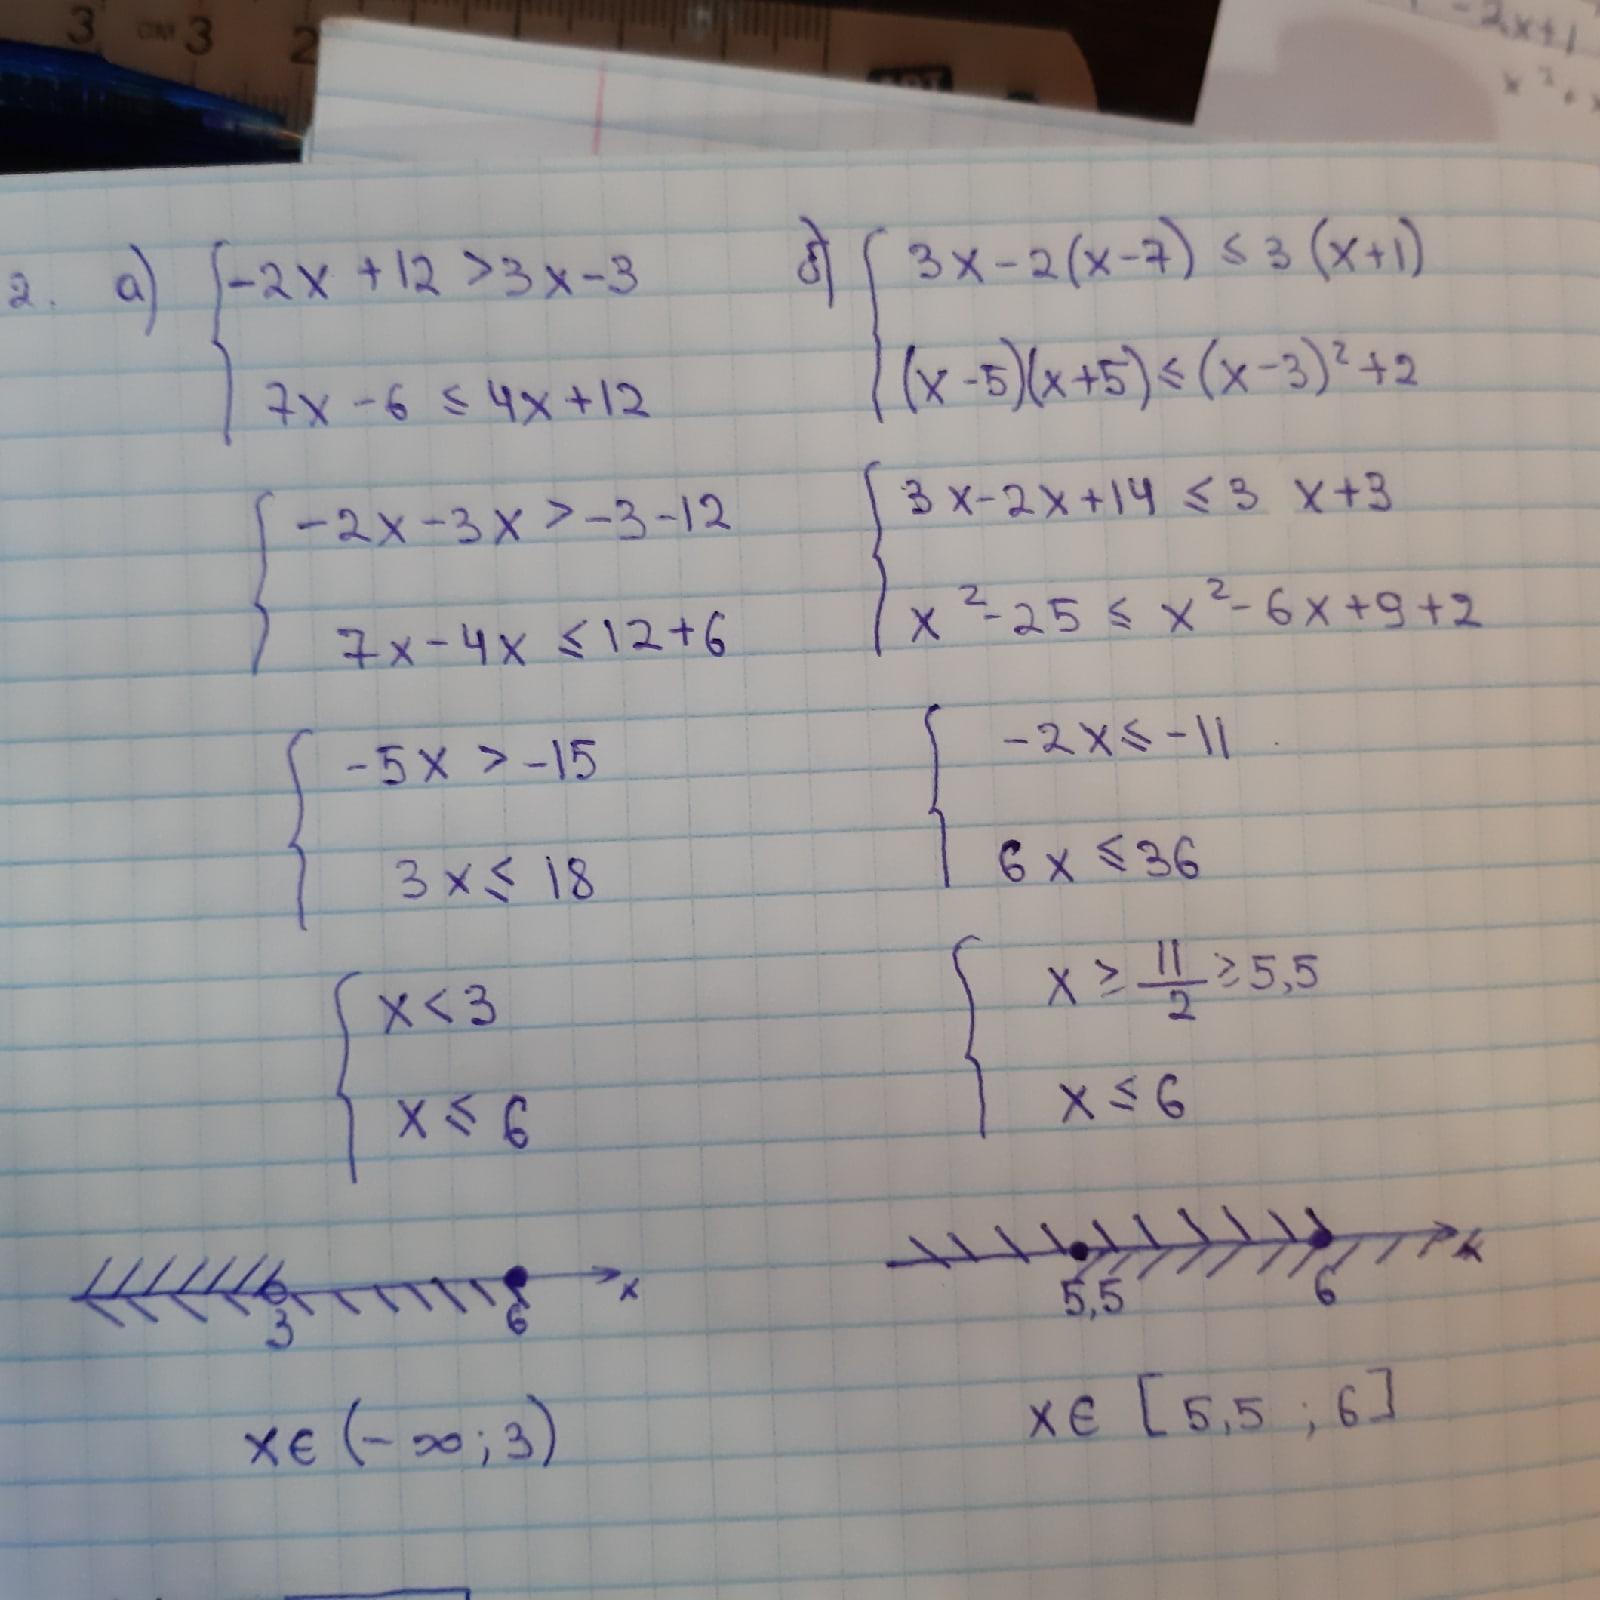 3 см 3 2
-2x+1
x² + x
2. а) { -2x + 12 > 3x - 3
7x - 6 ≤ 4x + 12
{ -2x - 3x > -3 - 12
7x - 4x ≤ 12 + 6
{ -5x > -15
3x ≤ 18
{ x < 3
x ≤ 6
3 6 x
x ∈ (-∞; 3)
б) { 3x - 2(x-7) ≤ 3(x+1)
(x-5)(x+5) ≤ (x-3)² + 2
{ 3x - 2x + 14 ≤ 3 x + 3
x² - 25 ≤ x² - 6x + 9 + 2
{ -2x ≤ -11
6x ≤ 36
{ x ≥ 11/2 ≥ 5,5
x ≤ 6
5,5 6 x
x ∈ [5,5 ; 6]